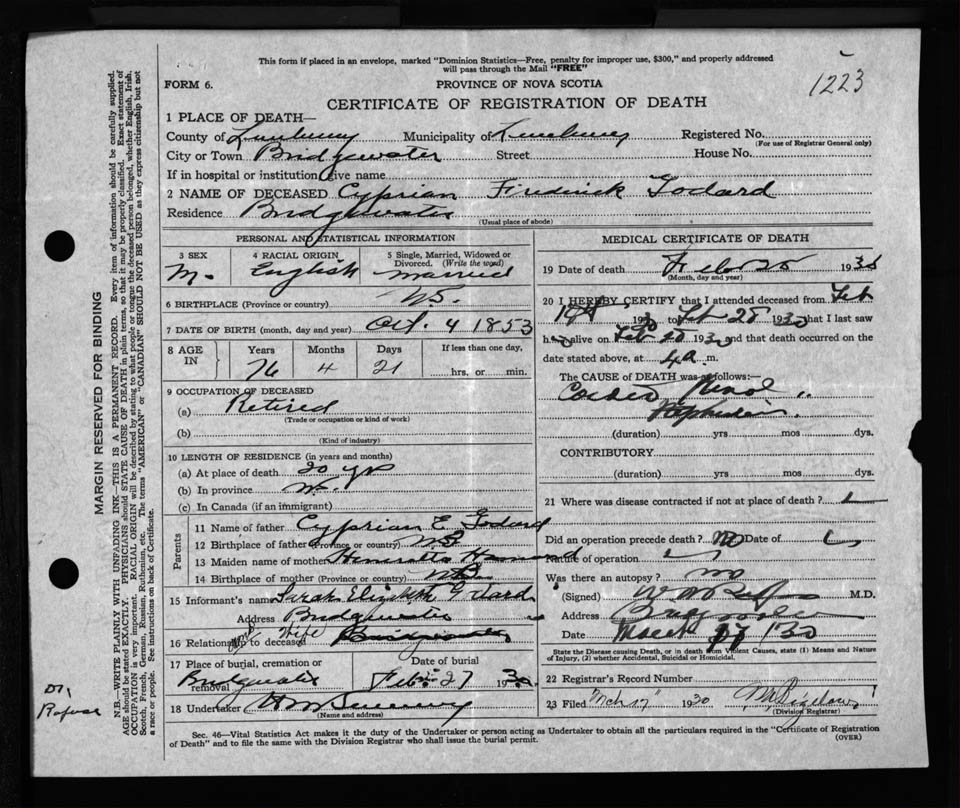 This form if placed in an envelope, marked "Dominion Statistics—Free, penalty for improper use, $300," and properly addressed
will pass through the Mail "FREE"
1223
FORM 6.
PROVINCE OF NOVA SCOTIA
CERTIFICATE OF REGISTRATION OF DEATH
1 PLACE OF DEATH—
County of Lunenburg Municipality of Lunenburg Registered No.
(For use of Registrar General only)
City or Town Bridgewater Street House No.
If in hospital or institution give name
2 NAME OF DECEASED Cyprian Fredrick Godard
Residence Bridgewater
(Usual place of abode)
PERSONAL AND STATISTICAL INFORMATION
3 SEX 4 RACIAL ORIGIN 5 Single, Married, Widowed or
Divorced. (Write the word)
M. English Married
6 BIRTHPLACE (Province or country)
7 DATE OF BIRTH (month, day and year) Oct. 4 1853
8 AGE IN Years Months Days If less than one day,
76 4 21 hrs. or min.
9 OCCUPATION OF DECEASED
(a) Retired
(Trade or occupation or kind of work)
(b)
(Kind of industry)
10 LENGTH OF RESIDENCE (in years and months)
(a) At place of death 20 yrs
(b) In province
(c) In Canada (if an immigrant)
Parents
11 Name of father Cyprian E. Godard
12 Birthplace of father (Province or country) N.B
13 Maiden name of mother Henrietta
14 Birthplace of mother (Province or country) N.B
15 Informant's name Sarah Elizabeth Godard
Address Bridgewater
16 Relation to deceased Wife Bridgewater
17 Place of burial, cremation or
removal Bridgewater
Date of burial
Feb. 27 1930
18 Undertaker
(Name and address)
MEDICAL CERTIFICATE OF DEATH
19 Date of death Feb 25 1930
(Month, day and year)
20 I HEREBY CERTIFY that I attended deceased from Feb
19th 1930 to Feb 25 1930 that I last saw
h alive on Feb 1930 and that death occurred on the
date stated above, at 4 a m.
The CAUSE of DEATH was as follows:—
Cardio Renal
(duration) yrs mos dys.
CONTRIBUTORY
(duration) yrs mos dys.
21 Where was disease contracted if not at place of death?
Did an operation precede death? no Date of
Nature of operation
Was there an autopsy? no
(Signed) M.D.
Address Bridgewater
Date March 30
State the Disease causing Death, or in death from Violent Causes, state (1) Means and Nature
of Injury, (2) whether Accidental, Suicidal or Homicidal.
22 Registrar's Record Number
23 Filed Mch 17 1930
(Division Registrar)
Sec. 46—Vital Statistics Act makes it the duty of the Undertaker or person acting as Undertaker to obtain all the particulars required in the "Certificate of Registration
of Death" and to file the same with the Division Registrar who shall issue the burial permit.
(OVER)
MARGIN RESERVED FOR BINDING
N.B.—WRITE PLAINLY WITH UNFADING INK—THIS IS A PERMANENT RECORD. Every item of information should be carefully supplied.
AGE should be stated EXACTLY. PHYSICIANS should STATE CAUSE OF DEATH in plain terms, so that it may be properly classified. Exact statement of
OCCUPATION is very important. RACIAL ORIGIN will be described by stating to what people or tongue the deceased person belonged, whether English, Irish,
Scotch, French, German, Russian, Ruthenian, etc. The terms "AMERICAN" or "CANADIAN" SHOULD NOT BE USED as they express citizenship but not
a race or people. See instructions on back of Certificate.